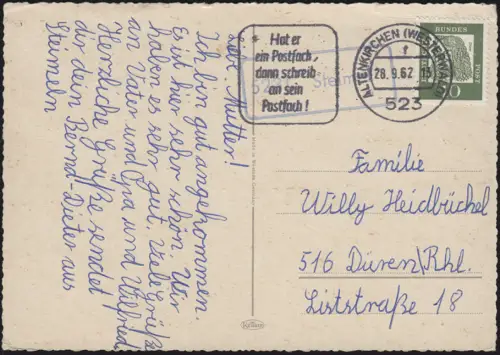 Liebe Mutter!
Ich bin gut angekommen.
Es ist hier sehr schön. Wir
haben es sehr gut. Viele Grüße
an Vater und Opa und Wilfried
Herzliche Grüße sendet
dir dein Bernd-Dieter aus
Steimeln
Hat er
ein Postfach,
dann schreib
an sein
Postfach!
ALTENKIRCHEN (WESTERWALD)
f
28.9.62 15
523
Familie
Willy Heidbüchel
516 Düren/Rhl.
Liststraße 18